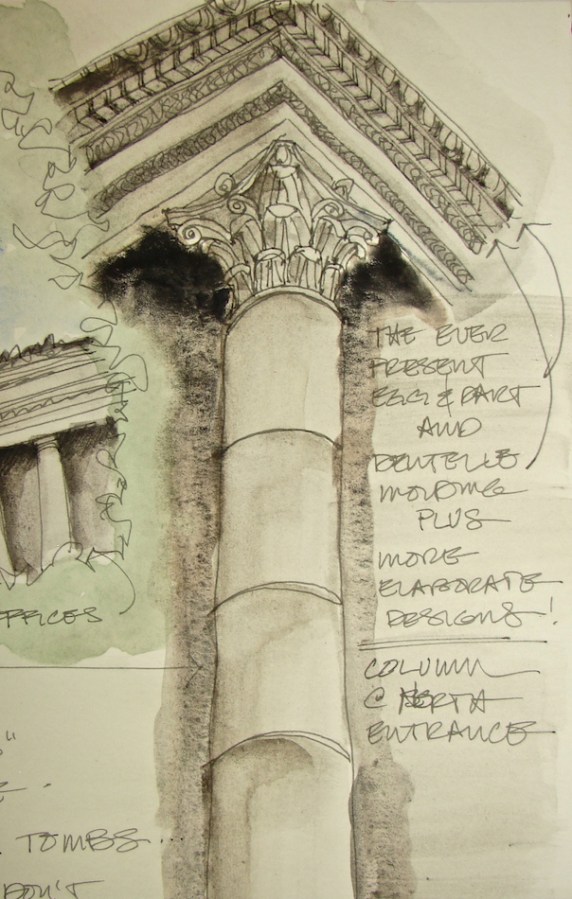 THE EVER
PRESENT
EGG & DART
AND
DENTELLE
MOLDING
PLUS
MORE
ELABORATE
DESIGNS!
COLUMN
@ NORTH
ENTRANCE
FFICES
TOMBS...
DON'T